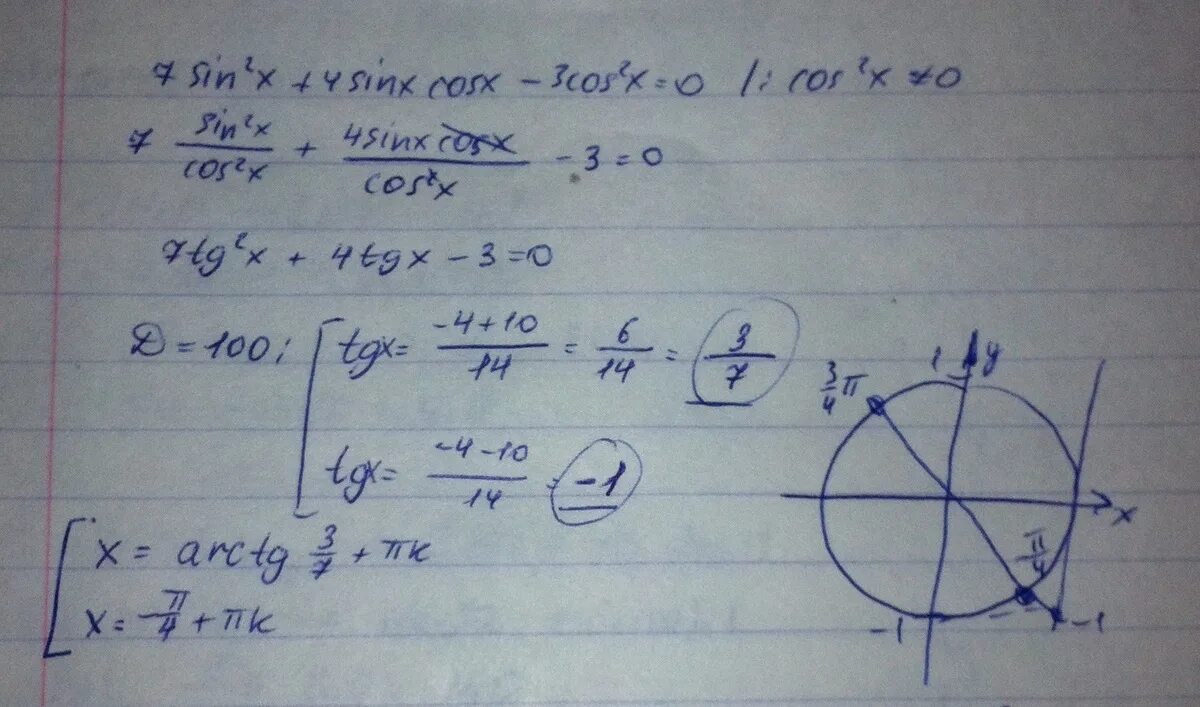 7 sin²x + 4 sinx cosx − 3cos²x = 0 /: cos²x ≠ 0
7 sin²x/cos²x + 4sinx cosx/cos²x − 3 = 0
7tg²x + 4tgx − 3 = 0
D = 100; [ tgx = (−4+10)/14 = 6/14 = 3/7
tgx = (−4−10)/14 = −1
[ x = arctg 3/7 + πk
x = −π/4 + πk
1 y
3/4 π
x
π/4
−1 −1